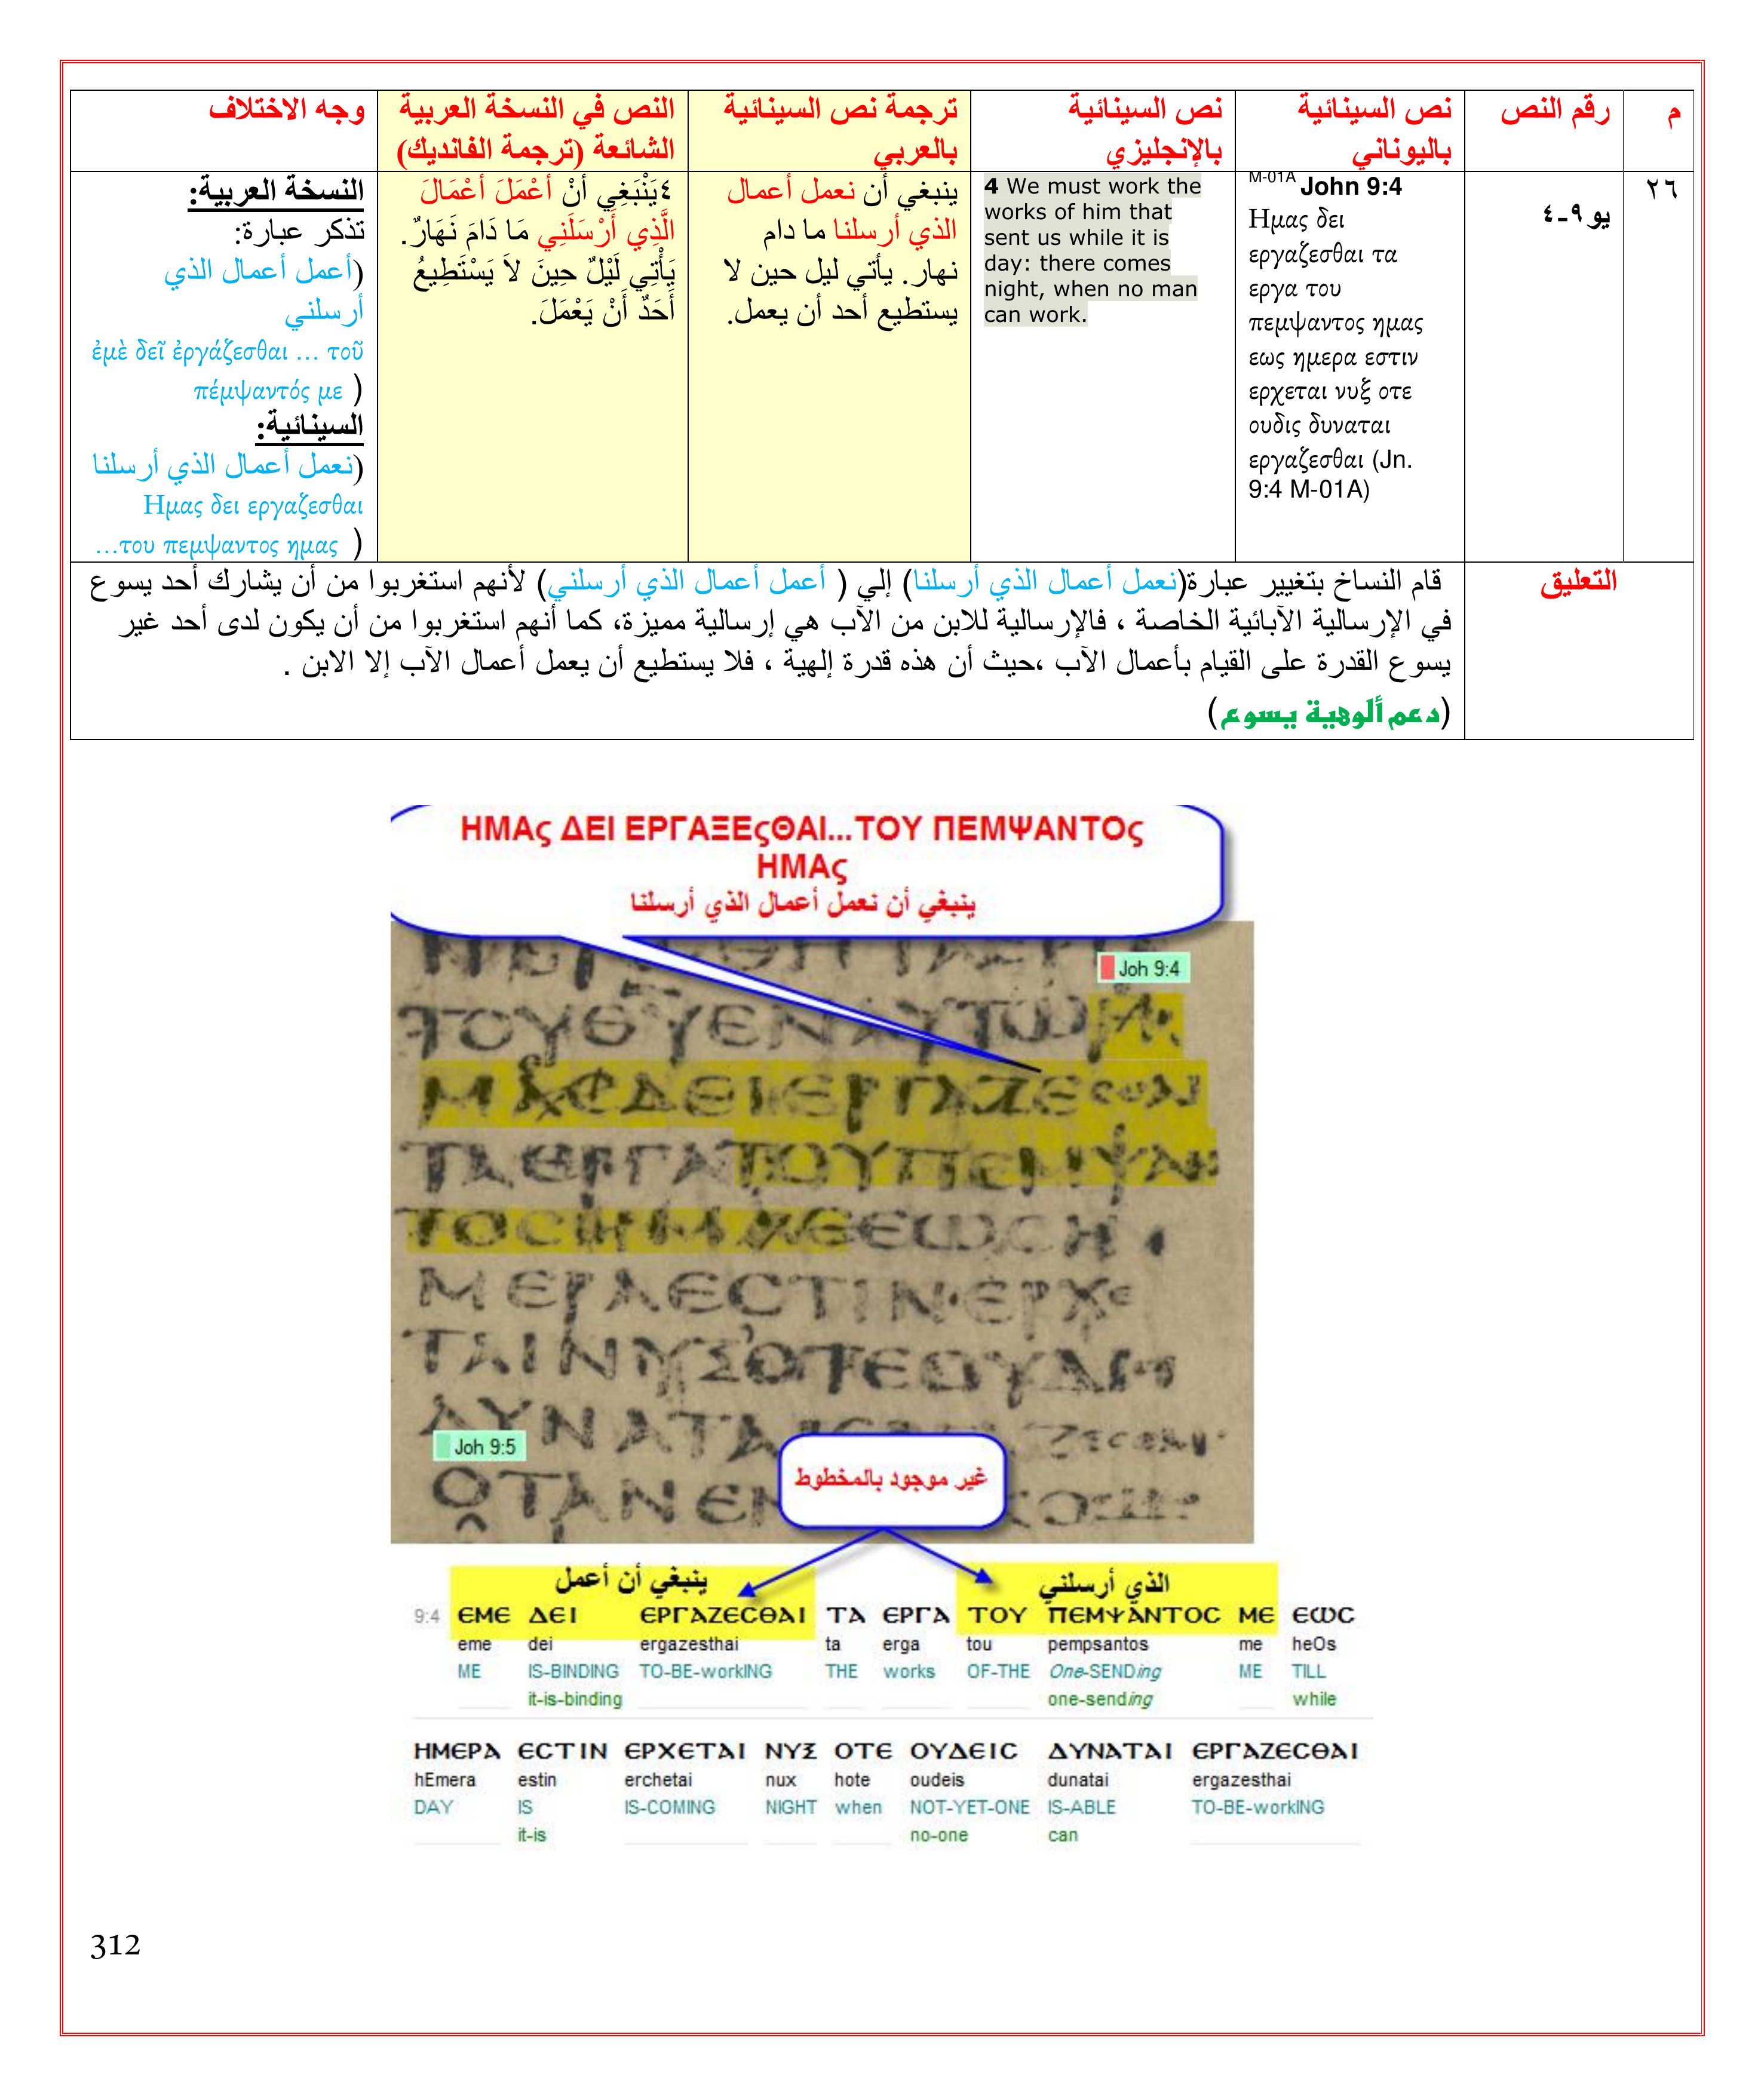 م
رقم النص
نص السينائية
باليوناني
نص السينائية
بالإنجليزي
ترجمة نص السينائية
بالعربي
النص في النسخة العربية
الشائعة (ترجمة الفانديك)
وجه الاختلاف
٢٦
يو ٩-٤
M-01A John 9:4
Ημας δει
εργαζεσθαι τα
εργα του
πεμψαντος ημας
εως ημερα εστιν
ερχεται νυξ οτε
ουδις δυναται
εργαζεσθαι (Jn.
9:4 M-01A)
4 We must work the
works of him that
sent us while it is
day: there comes
night, when no man
can work.
ينبغي أن نعمل أعمال
الذي أرسلنا ما دام
نهار. يأتي ليل حين لا
يستطيع أحد أن يعمل.
٤يَنْبَغِي أَنْ أَعْمَلَ أَعْمَالَ
الَّذِي أَرْسَلَنِي مَا دَامَ نَهَارٌ.
يَأْتِي لَيْلٌ حِينَ لاَ يَسْتَطِيعُ
أَحَدٌ أَنْ يَعْمَلَ.
النسخة العربية:
تذكر عبارة:
(أعمل أعمال الذي
أرسلني
ἐμὲ δεῖ ἐργάζεσθαι … τοῦ
πέμψαντός με )
السينائية:
(نعمل أعمال الذي أرسلنا
Ημας δει εργαζεσθαι
…του πεμψαντος ημας )
التعليق
قام النساخ بتغيير عبارة(نعمل أعمال الذي أرسلنا) إلي ( أعمل أعمال الذي أرسلني) لأنهم استغربوا من أن يشارك أحد يسوع
في الإرسالية الآبائية الخاصة ، فالإرسالية للابن من الآب هي إرسالية مميزة، كما أنهم استغربوا من أن يكون لدى أحد غير
يسوع القدرة على القيام بأعمال الآب ،حيث أن هذه قدرة إلهية ، فلا يستطيع أن يعمل أعمال الآب إلا الابن .
(دعم ألوهية يسوع)
ΗΜΑς ΔΕΙ ΕΡΓΑΞΕςΘΑΙ...ΤΟΥ ΠΕΜΨΑΝΤΟς
ΗΜΑς
ينبغي أن نعمل أعمال الذي أرسلنا
Joh 9:4
ΤΟΥΘΥΕΝΑΥΤΩΗ
ΜΑCΔΕΙΕΡΓΑΖΕCΘΑΙ
ΤΑΕΡΓΑΤΟΥΠΕΜΨΑΝ
ΤΟCΗΜΑCΕΩCΗ
ΜΕΡΑΕCΤΙΝ·ΕΡΧΕ
ΤΑΙΝΥΞΟΤΕΟΥΔΙC
ΔΥΝΑΤΑ
Joh 9:5
ΟΤΑΝΕΝ
غير موجود بالمخطوط
ينبغي أن أعمل
الذي أرسلني
9:4 ΕΜΕ ΔΕΙ ΕΡΓΑΖΕCΘΑΙ ΤΑ ΕΡΓΑ ΤΟΥ ΠΕΜΨΑΝΤΟC ΜΕ ΕΩC
eme dei ergazesthai ta erga tou pempsantos me heOs
ME IS-BINDING TO-BE-workING THE works OF-THE One-SENDing ME TILL
it-is-binding one-sending while
ΗΜΕΡΑ ΕCΤΙΝ ΕΡΧΕΤΑΙ ΝΥΞ ΟΤΕ ΟΥΔΕΙC ΔΥΝΑΤΑΙ ΕΡΓΑΖΕCΘΑΙ
hEmera estin erchetai nux hote oudeis dunatai ergazesthai
DAY IS IS-COMING NIGHT when NOT-YET-ONE IS-ABLE TO-BE-workING
it-is no-one can
312